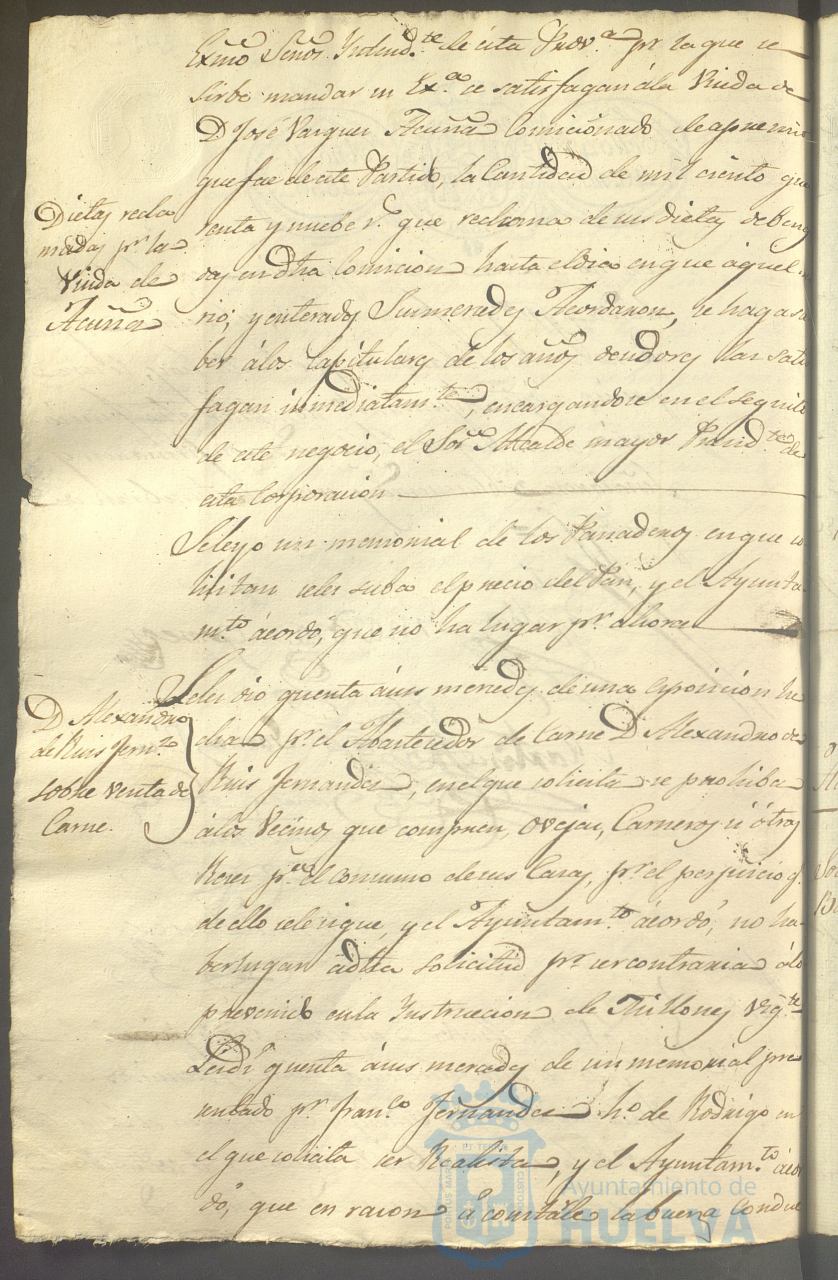 Exmo Señor Yntend.te de esta Prov.a pr la que se
sirbe mandar su Ex.a se satisfagan á la Viuda de
D José Varquez Acuña Comicionado de apremio
que fue de este Partido, la Cantidad de mil ciento qua
renta y nuebe r.s que reclama de sus dietas deben
das en dha Comicion hasta el dia en que aquel mu
rio; y enterados Sus mercedes Acordaron, se haga sa
ber á los Capitulares de los años deudores las satis
fagan inmediatam.te, encargandose en el seguito
de este negocio, el Sor. Alcalde mayor Presid.te de
esta Corporacion
Dietas recla
madas pr. la
Viuda de
Acuña
Se leyo un memorial de los Panaderos en que so
licitan se les suba el precio del Pan, y el Ayunta
m.to acordo, que no ha lugar pr. ahora
Se les dio quenta á sus mercedes de una esposicion he
cha pr. el Abastecedor de Carne D Alexandro de
Ruis Fernandes, en el que solicita se prohiba
á los Vecinos que compren, Ovejas, Carneros ú otras
Reses pr.a el consumo de sus Casas, pr. el perjuicio q.
de ello se le sigue, y el Ayuntam.to acordó, no ha
ber lugar á dha solicitud pr. ser contraria á lo
prevenido en la Ynstruccion de Millones vig.te
D Alexandro
de Ruis Fern.z
sobre venta de
Carne.
Se dio quenta á sus mercedes de un memorial pre
sentado pr. Fran.co Fernandes h.o de Rodrigo en
el que solicita ser Realista, y el Ayuntam.to acor
dó, que en rason á constarle la buena condu
Ayuntamiento de
HUELVA
PORTUS MARIS ET TERRAE CUSTODIA